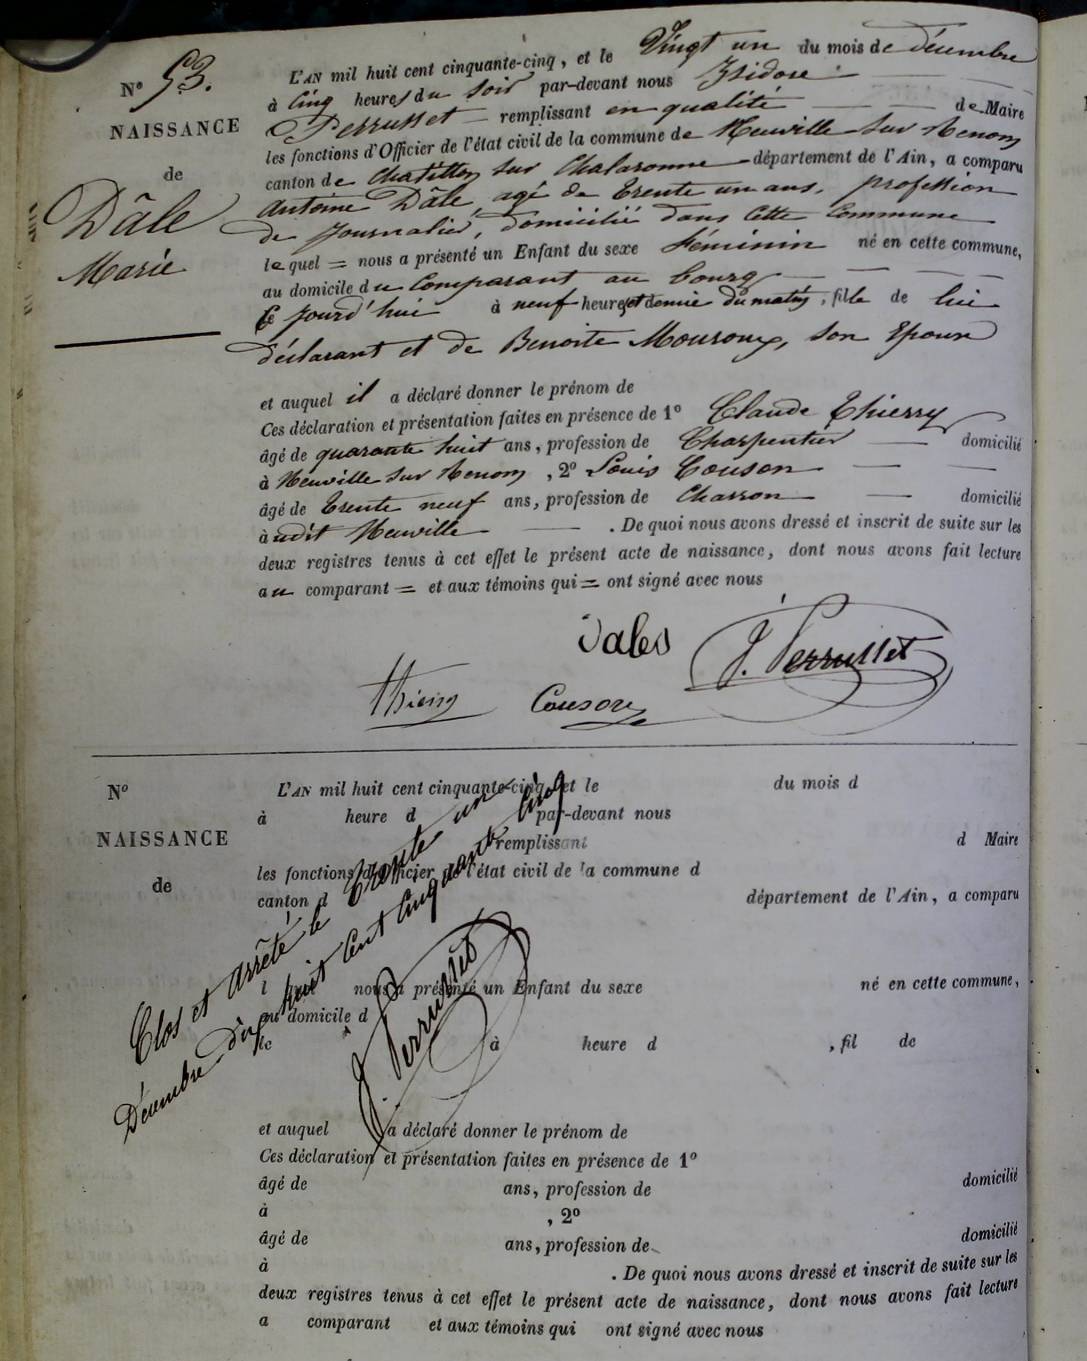 N° 53.
NAISSANCE
de
Dâle
Marie
L'AN mil huit cent cinquante-cinq, et le Vingt un du mois de décembre
à Cinq heures du soir par-devant nous Isidore
Perrusset remplissant en qualité de Maire
les fonctions d'Officier de l'état civil de la commune de Neuville sur Renom
canton de Chatillon sur Chalaronne département de l'Ain, a comparu
Antoine Dâle, agé de Trente un ans, profession
de Journalier, domicilié dans Cette Commune
lequel = nous a présenté un Enfant du sexe féminin né en cette commune,
au domicile du Comparant au bourg
Ce jourd'hui à neuf heures et demie du matin, fille de lui
déclarant et de Benoite Mouroux, son Epouse
et auquel il a déclaré donner le prénom de
Ces déclaration et présentation faites en présence de 1° Claude Thierry
âgé de quarante huit ans, profession de Charpentier domicilié
à Neuville sur Renom, 2° Louis Couson
âgé de Trente neuf ans, profession de Charron domicilié
à udit Neuville . De quoi nous avons dressé et inscrit de suite sur les
deux registres tenus à cet effet le présent acte de naissance, dont nous avons fait lecture
au comparant = et aux témoins qui = ont signé avec nous
Dales J. Perrusset
Thierry Couson
N°
NAISSANCE
de
L'AN mil huit cent cinquante-cinq, et le du mois d
à heure d par-devant nous
remplissant d Maire
les fonctions d'Officier de l'état civil de la commune d
canton d département de l'Ain, a comparu
l nous a présenté un Enfant du sexe né en cette commune,
au domicile d
le à heure d , fil de
et auquel a déclaré donner le prénom de
Ces déclaration et présentation faites en présence de 1°
âgé de ans, profession de domicilié
à , 2°
âgé de ans, profession de domicilié
à . De quoi nous avons dressé et inscrit de suite sur les
deux registres tenus à cet effet le présent acte de naissance, dont nous avons fait lecture
a comparant et aux témoins qui ont signé avec nous
Clos et arrêté le trente un
Décembre dix huit Cent Cinquante Cinq
J. Perrusset